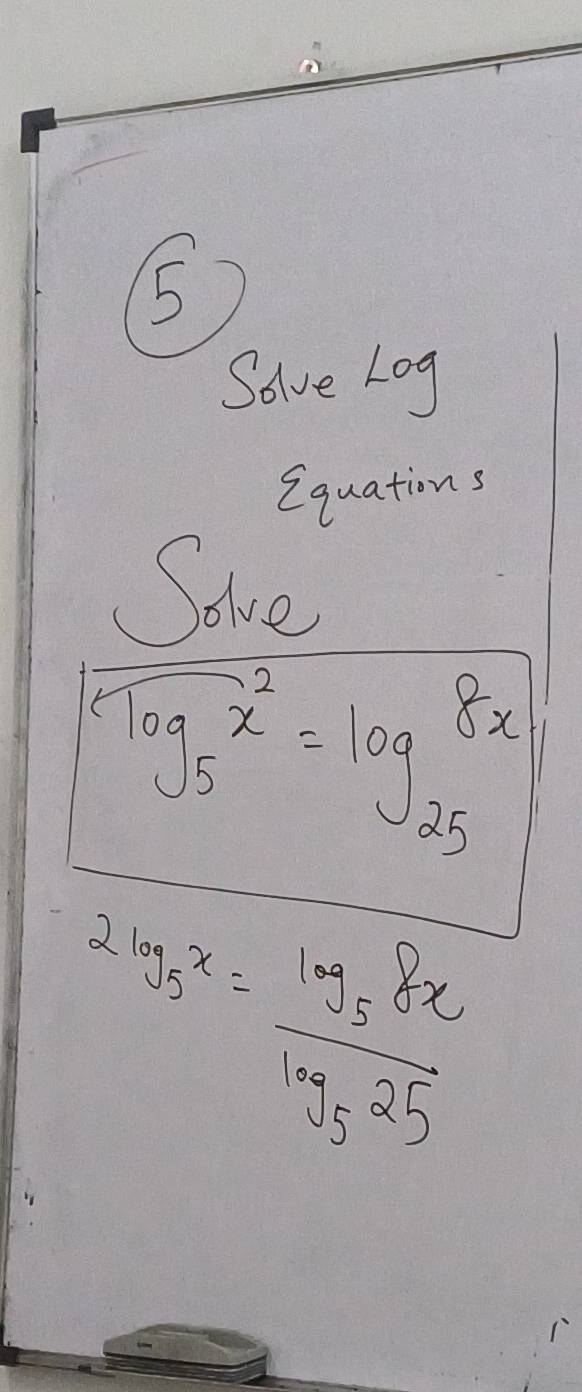 5
Solve Log
Equations
Solve
log₅ x² = log₂₅ 8x
2 log₅ x = log₅ 8x
log₅ 25